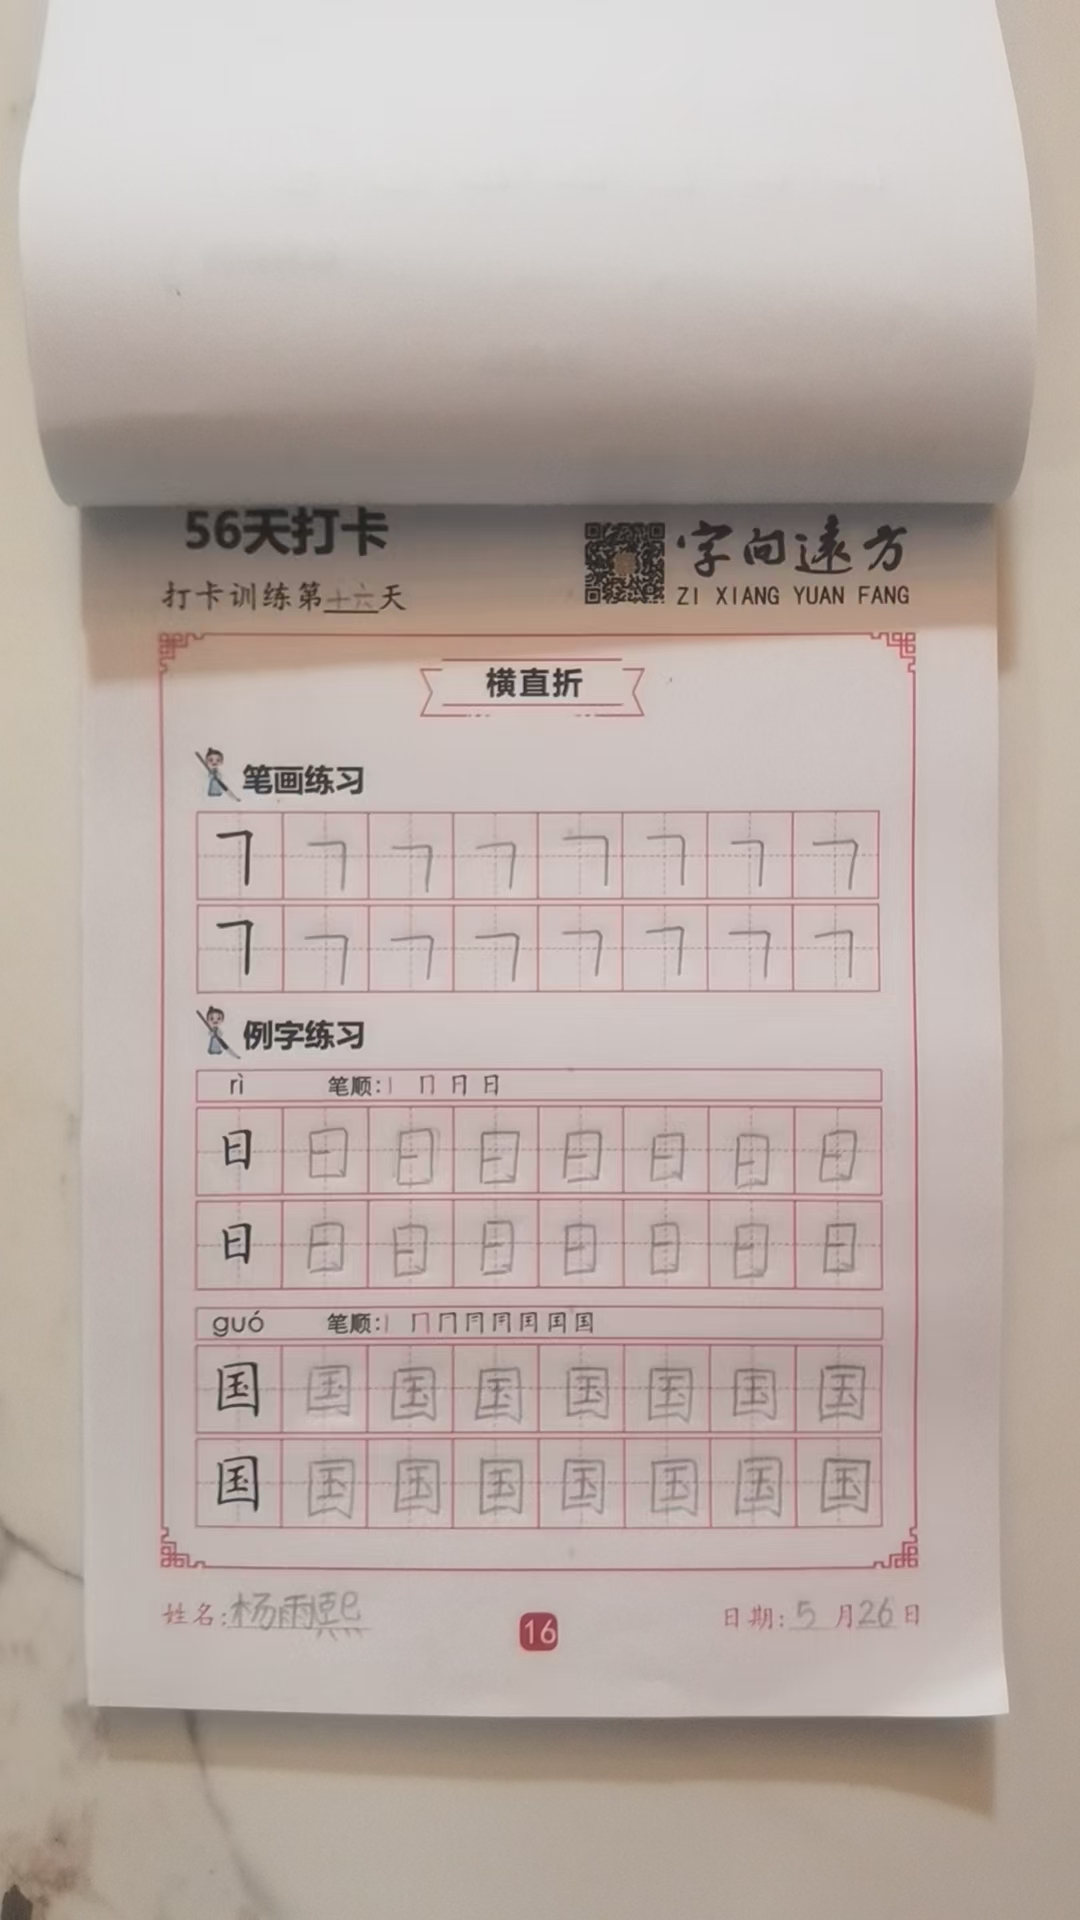 56天打卡
字向遠方
打卡训练第十六天
ZI XIANG YUAN FANG
横直折
笔画练习
㇕ ㇕ ㇕ ㇕ ㇕ ㇕ ㇕ ㇕
㇕ ㇕ ㇕ ㇕ ㇕ ㇕ ㇕ ㇕
例字练习
rì 笔顺:丨 冂 日 日
日 日 日 日 日 日 日 日
日 日 日 日 日 日 日 日
guó 笔顺:丨 冂 国
国 国 国 国 国 国 国 国
国 国 国 国 国 国 国 国
姓名:杨雨熙
16
日期:5月26日